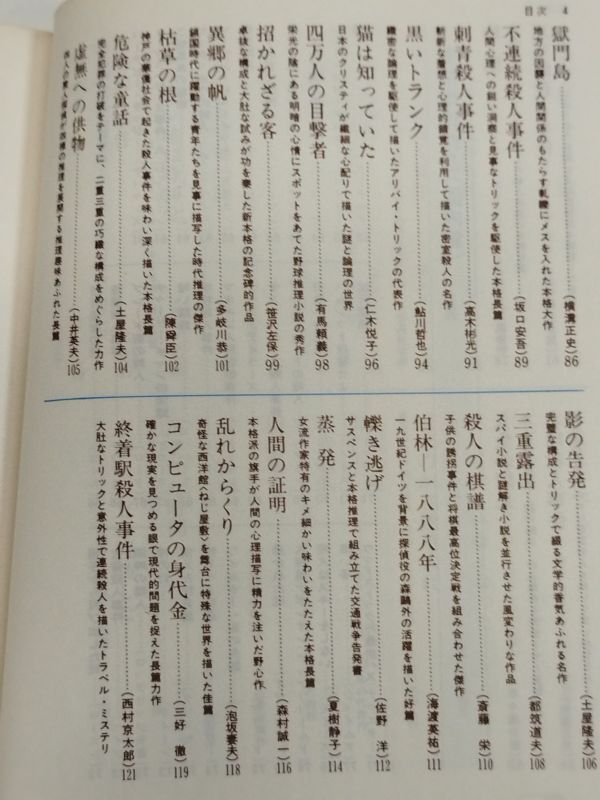 目次 4
獄門島……(横溝正史)86
地方の因襲と人間関係のもたらす軋轢にメスを入れた本格大作
不連続殺人事件……(坂口安吾)89
人間心理への鋭い洞察と見事なトリックを駆使した本格長篇
刺青殺人事件……(高木彬光)91
斬新な着想と心理的錯覚を利用して描いた密室殺人の名作
黒いトランク……(鮎川哲也)94
緻密な論理を駆使して描いたアリバイ・トリックの代表作
猫は知っていた……(仁木悦子)96
日本のクリスティが繊細な心配りで描いた謎と論理の世界
四万人の目撃者……(有馬頼義)98
栄光の陰にある明暗の心情にスポットをあてた野球推理小説の秀作
招かれざる客……(笹沢左保)99
卓抜な構成と大胆な試みが功を奏した新本格の記念碑的作品
異郷の帆……(多岐川恭)101
鎖国時代に躍動する青年たちを見事に描写した時代推理の傑作
枯草の根……(陳舜臣)102
神戸の華僑社会で起きた殺人事件を味わい深く描いた本格長篇
危険な童話……(土屋隆夫)104
完全犯罪の打破をテーマに、二重三重の巧緻な構成をめぐらした力作
虚無への供物……(中井英夫)105
四人の素人探偵が四種の推理を展開する推理趣味あふれた長篇
影の告発……(土屋隆夫)106
完璧な構成とトリックで綴る文学的香気あふれる名作
三重露出……(都筑道夫)108
スパイ小説と謎解き小説を並行させた風変わりな作品
殺人の棋譜……(斎藤 栄)110
子供の誘拐事件と将棋最高位決定戦を組み合わせた傑作
伯林―一八八八年……(海渡英祐)111
一九世紀ドイツを背景に探偵役の森鷗外の活躍を描いた好篇
轢き逃げ……(佐野 洋)112
サスペンスと本格推理で組み立てた交通戦争告発書
蒸発……(夏樹静子)114
女流作家特有のキメ細かい味わいをたたえた本格長篇
人間の証明……(森村誠一)116
本格派の旗手が人間の心理描写に精力を注いだ野心作
乱れからくり……(泡坂妻夫)118
奇怪な西洋館〈ねじ屋敷〉を舞台に特殊な世界を描いた佳篇
コンピュータの身代金……(三好 徹)119
確かな現実を見つめる眼で現代的問題を捉えた長篇力作
終着駅殺人事件……(西村京太郎)121
大胆なトリックと意外性で連続殺人を描いたトラベル・ミステリ